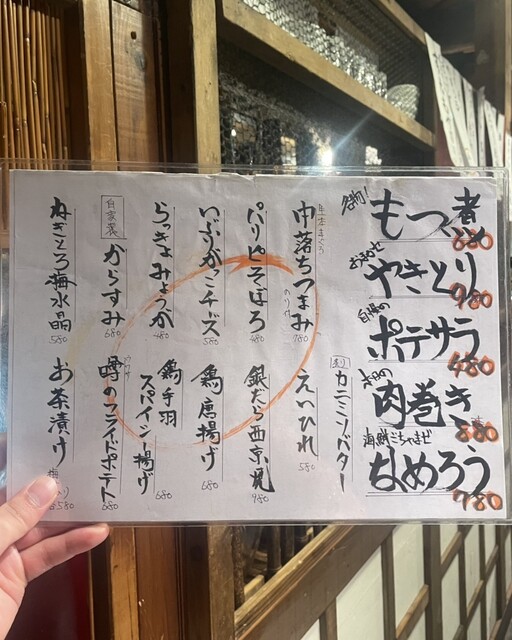 名物！
もつ煮
680
おまかせ
やきとり
980
自慢の
ポテサラ
480
本日の
肉巻き
880
海鮮ごちゃまぜ
なめろう
780
生本まぐろ
中落ちつまみ
のり付
780
パリピそぼろ
480
いぶりがっこチーズ
580
らっきょみょうが
480
自家製
からすみ
680
ねぎとろ梅水晶
580
カニミソバター
えいひれ
580
銀だら西京焼
980
鶏唐揚げ
680
鶏手羽
スパイシー揚げ
680
噂のフライドポテト
680
お茶漬け
580